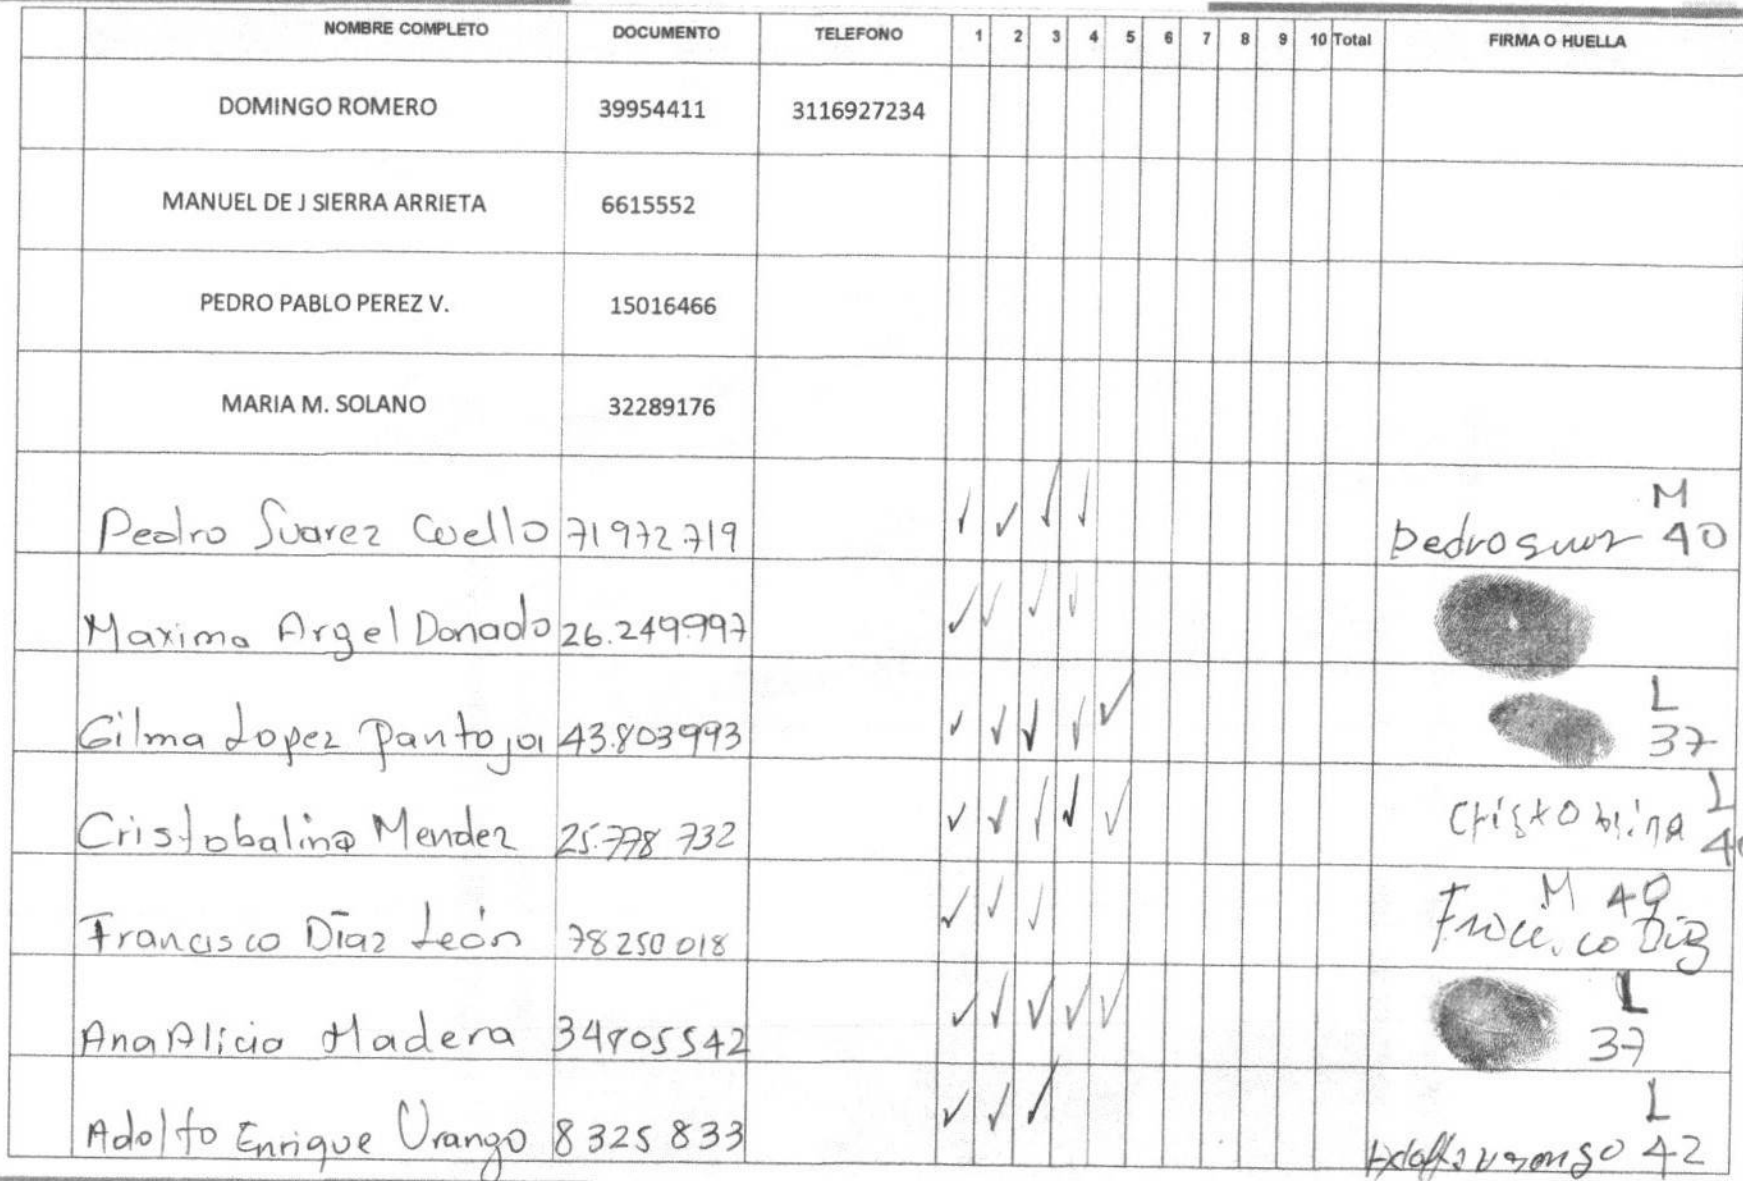 NOMBRE COMPLETO DOCUMENTO TELEFONO 1 2 3 4 5 6 7 8 9 10 Total FIRMA O HUELLA
DOMINGO ROMERO 39954411 3116927234
MANUEL DE J SIERRA ARRIETA 6615552
PEDRO PABLO PEREZ V. 15016466
MARIA M. SOLANO 32289176
Pedro Suarez Coello 71972719 ✓ ✓ ✓ ✓ M
40
Maxima Argel Donado 26.249.997 ✓ ✓ ✓ ✓
Gilma Lopez Pantoja 43.803993 ✓ ✓ ✓ ✓ ✓ L
37
Cristobalina Mendez 25.778 732 ✓ ✓ ✓ ✓ ✓ L
Francisco Díaz León 78250018 ✓ ✓ ✓ M 40
Ana Alicia Madera ✓ ✓ ✓ ✓ ✓ L
37
Adolfo Enrique Urango 8325833 ✓ ✓ ✓ L
42